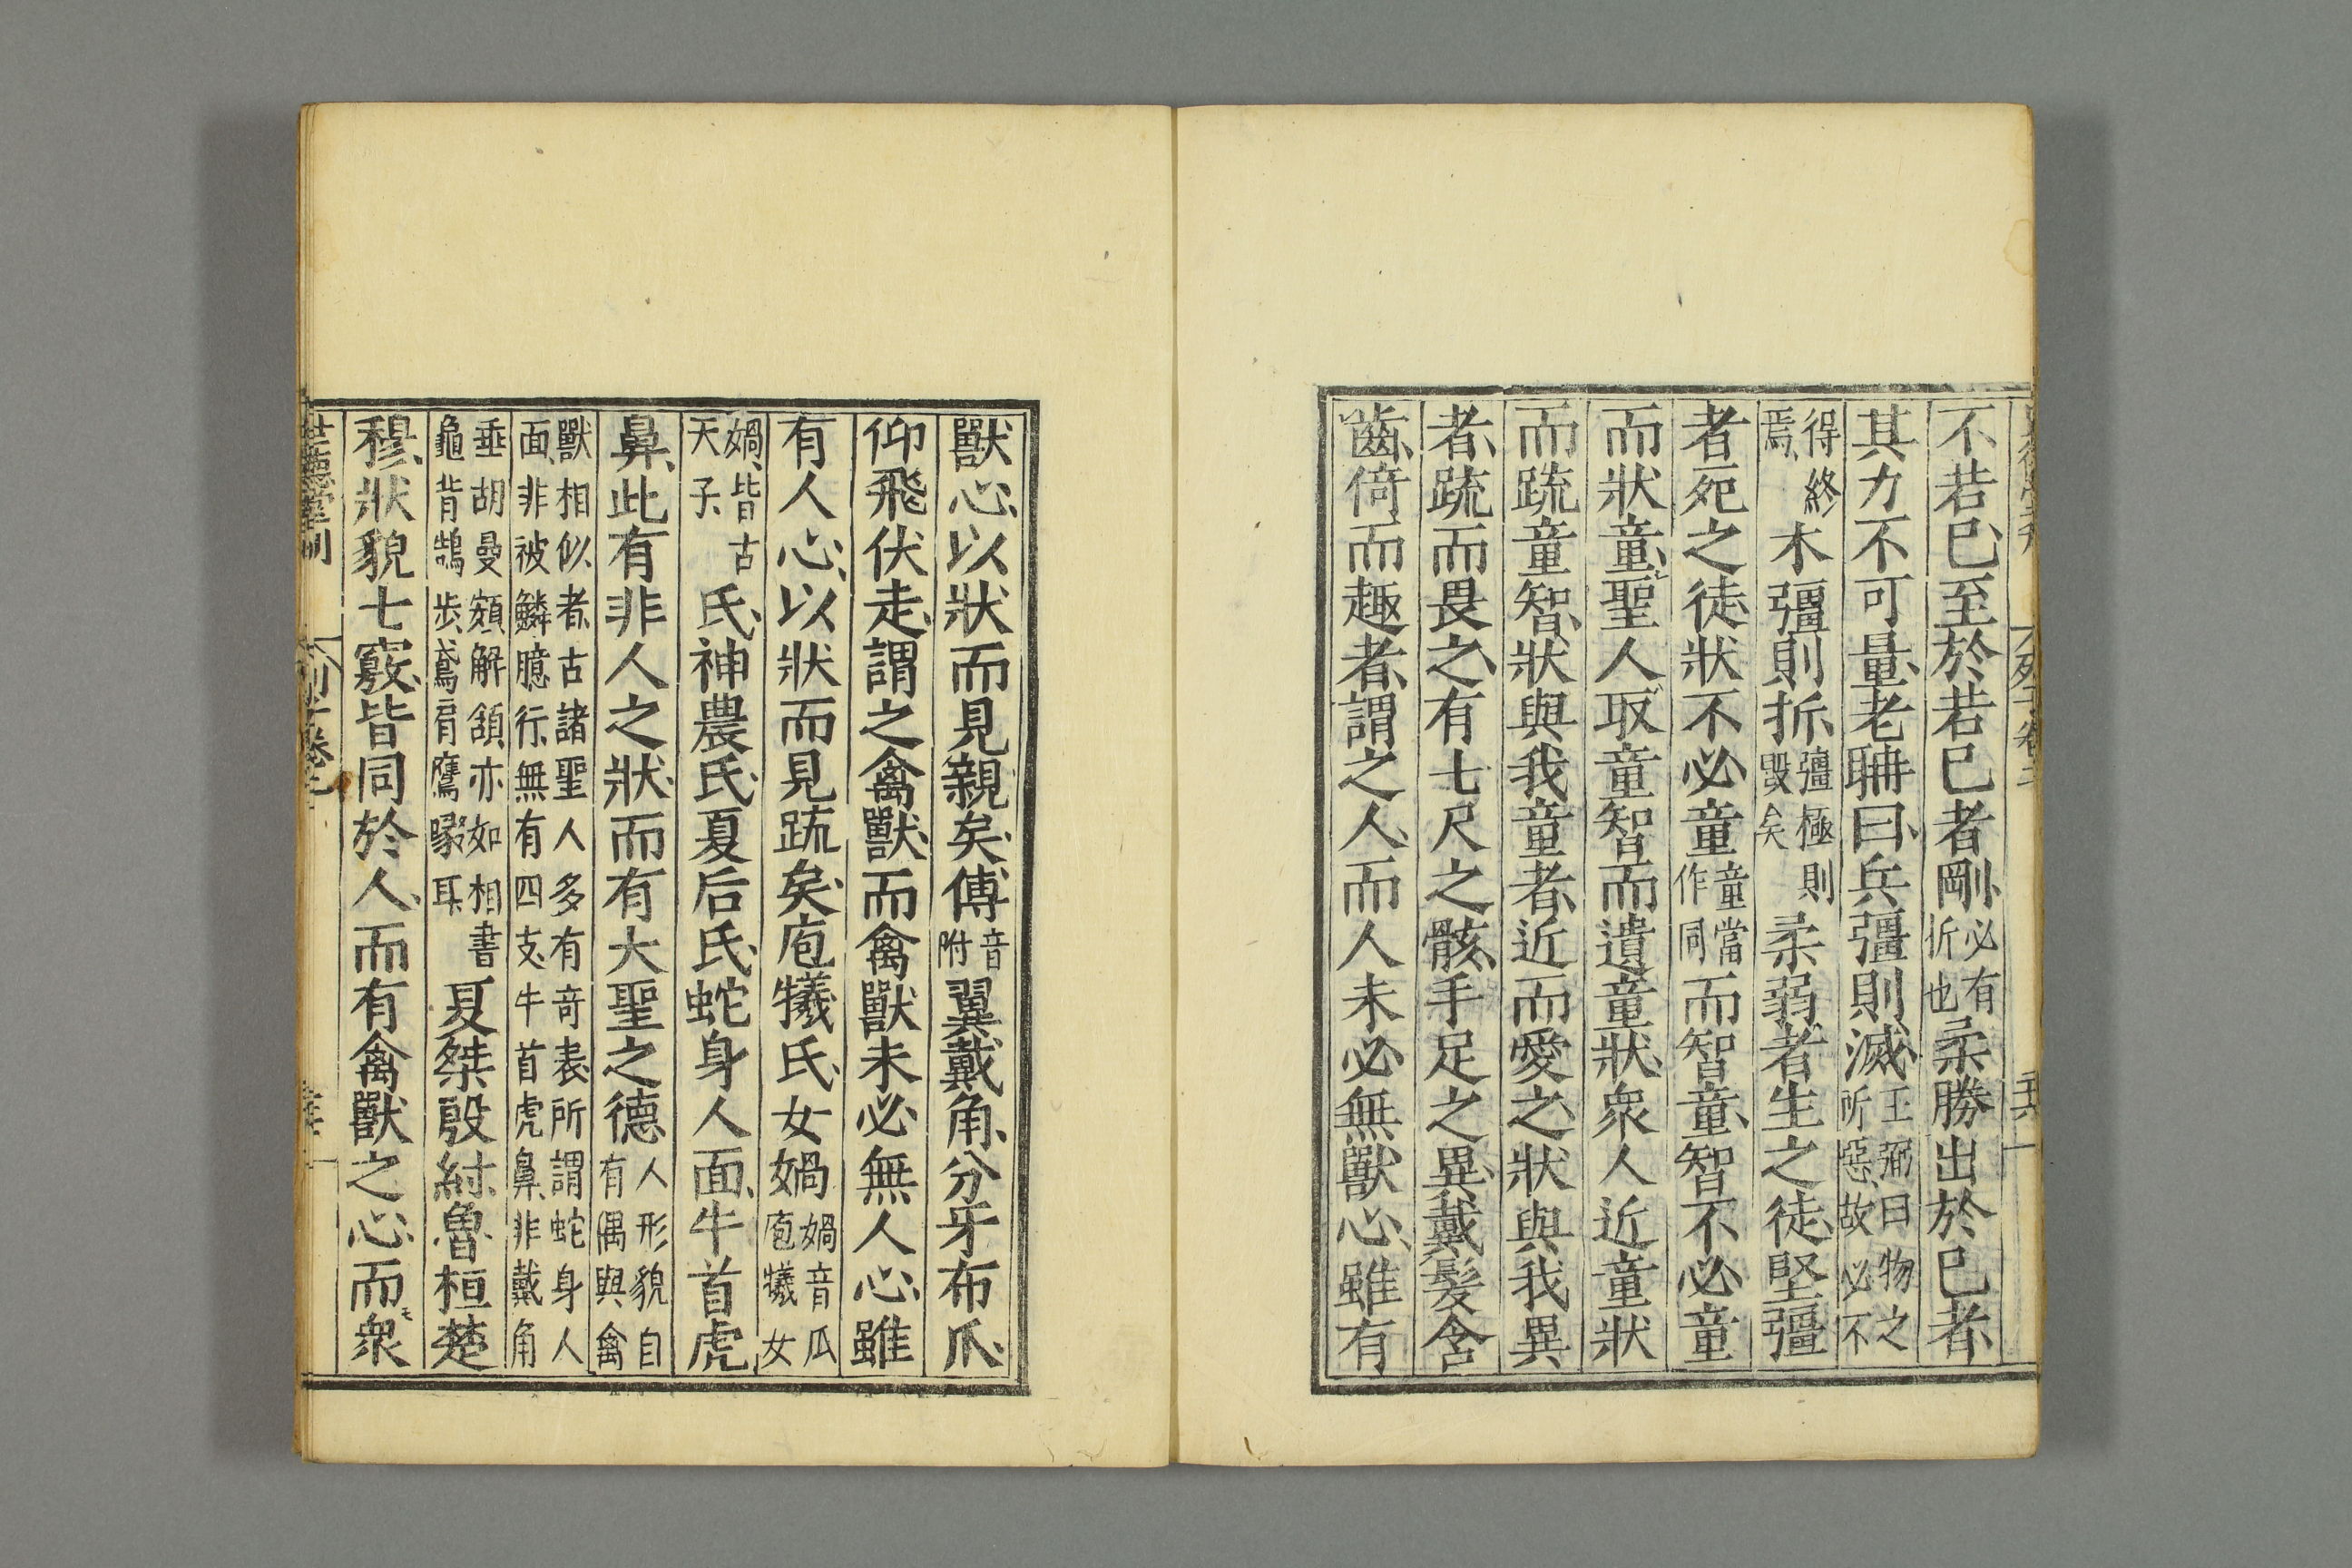 不若已至於若已者剛必有折也柔勝出於已者
其力不可量老聃曰兵彊則滅王弼曰物之所惡故必不
得終焉木彊則折彊極則毀矣柔弱者生之徒堅彊
者死之徒狀不必童童當作同而智童智不必童
而狀童聖人取童智而遺童狀衆人近童狀
而疏童智狀與我童者近而愛之狀與我異
者疏而畏之有七尺之骸手足之異戴髮含
齒倚而趣者謂之人而人未必無獸心雖有
獸心以狀而見親矣傅音附翼戴角分牙布爪
仰飛伏走謂之禽獸而禽獸未必無人心雖
有人心以狀而見疏矣庖犧氏女媧媧音瓜庖犧女
媧皆古天子氏神農氏夏后氏蛇身人面牛首虎
鼻此有非人之狀而有大聖之德人形貌自有偶與禽
獸相似者古諸聖人多有奇表所謂蛇身人面非被鱗臆行無有四支牛首虎鼻非戴角
垂胡曼頞解頷亦如相書龜背鵠步鳶肩鷹喙耳夏桀殷紂魯桓楚
穆狀貌七竅皆同於人而有禽獸之心而衆
世德堂刊